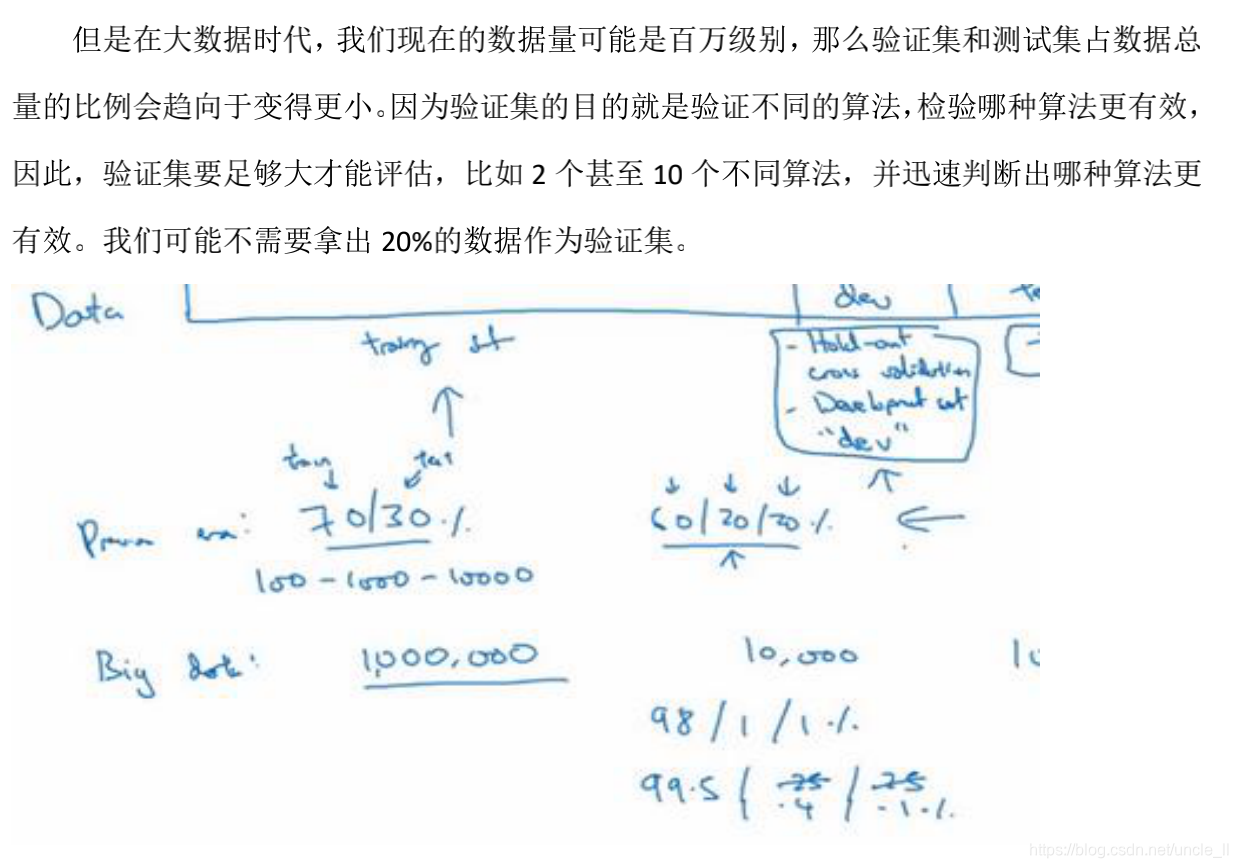 但是在大数据时代，我们现在的数据量可能是百万级别，那么验证集和测试集占数据总
量的比例会趋向于变得更小。因为验证集的目的就是验证不同的算法，检验哪种算法更有效，
因此，验证集要足够大才能评估，比如 2 个甚至 10 个不同算法，并迅速判断出哪种算法更
有效。我们可能不需要拿出 20%的数据作为验证集。
Data dev
- Hold-out
cross validation
- Development set
"dev"
70/30% 60/20/20%
100 - 1000 - 10000
Big data: 1,000,000 10,000
98 / 1 / 1 %
99.5 / .25 / .25
.4 .1 %
https://blog.csdn.net/uncle_ll